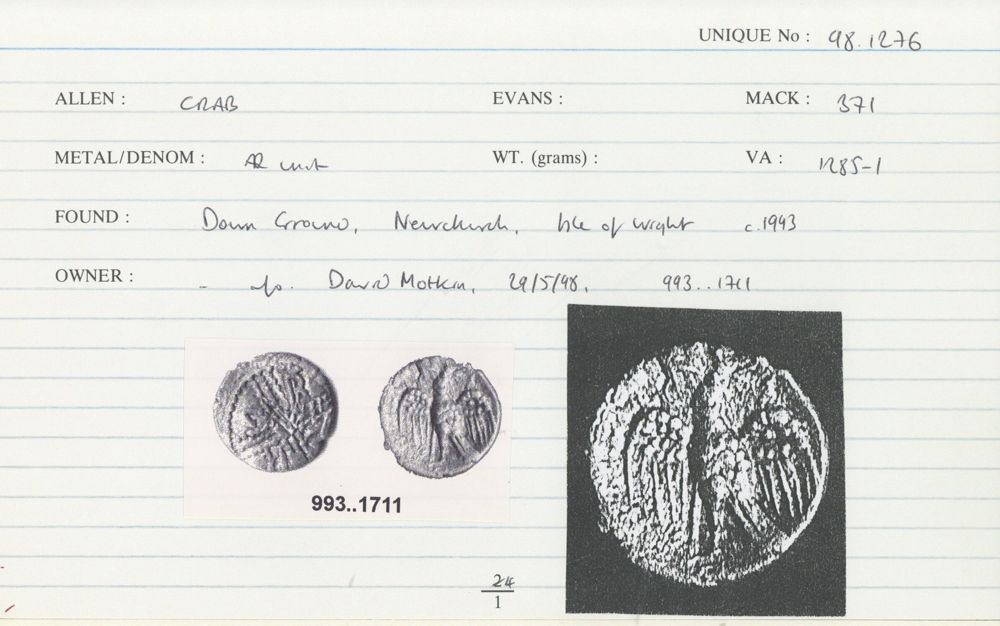 UNIQUE No : 98.1276
ALLEN : CRAB EVANS : MACK : 371
METAL/DENOM : AR unit WT. (grams) : VA : 1285-1
FOUND : Down Ground, Newchurch, Isle of Wight c.1993
OWNER : - David Motkin, 29/5/98, 993..1711
993..1711
24
1